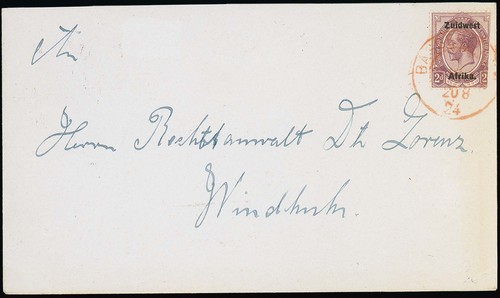 Zuidwest
Afrika.
2d 2d
BA
20 8
24
An
Herrn Rechtsanwalt Dr. Lorenz.
Windhuk.